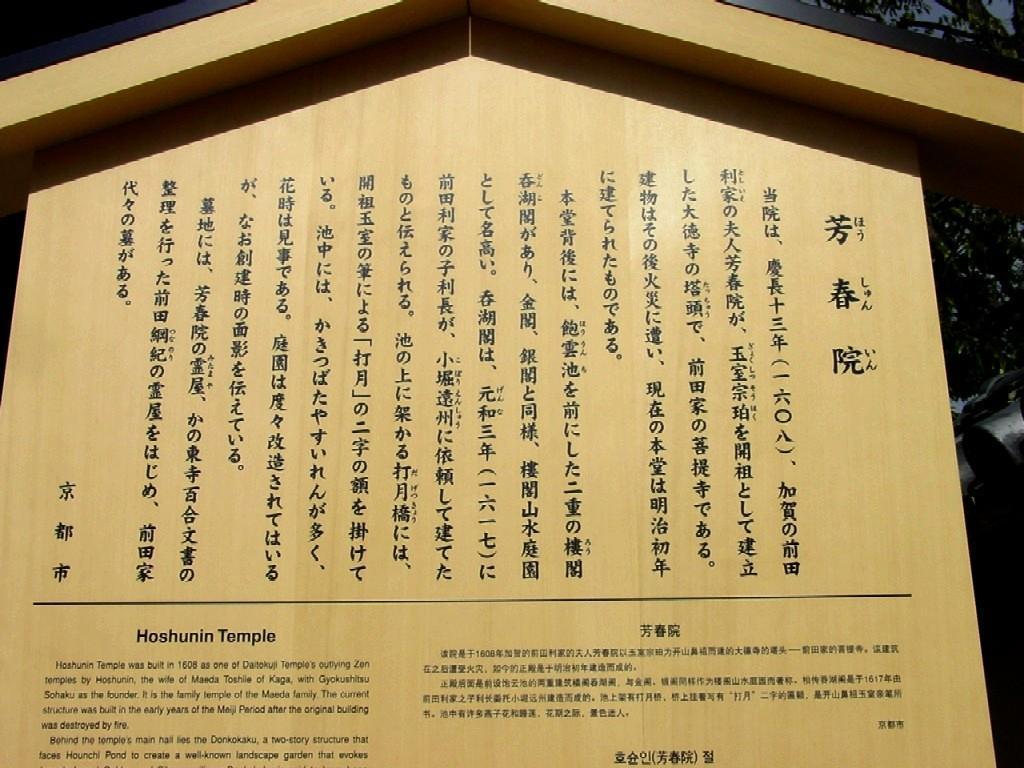 芳春院
ほうしゅんいん
当院は、慶長十三年(一六〇八)、加賀の前田
利家の夫人芳春院が、玉室宗珀を開祖として建立
した大徳寺の塔頭で、前田家の菩提寺である。
建物はその後火災に遭い、現在の本堂は明治初年
に建てられたものである。
本堂背後には、飽雲池を前にした二重の樓閣
呑湖閣があり、金閣、銀閣と同様、樓閣山水庭園
として名高い。呑湖閣は、元和三年(一六一七)に
前田利家の子利長が、小堀遠州に依頼して建てた
ものと伝えられる。池の上に架かる打月橋には、
開祖玉室の筆による「打月」の二字の額を掛けて
いる。池中には、かきつばたやすいれんが多く、
花時は見事である。庭園は度々改造されてはいる
が、なお創建時の面影を伝えている。
墓地には、芳春院の霊屋、かの東寺百合文書の
整理を行った前田綱紀の霊屋をはじめ、前田家
代々の墓がある。
京都市
Hoshunin Temple
Hoshunin Temple was built in 1608 as one of Daitokuji Temple's outlying Zen
temples by Hoshunin, the wife of Maeda Toshiie of Kaga, with Gyokushitsu
Sohaku as the founder. It is the family temple of the Maeda family. The current
structure was built in the early years of the Meiji Period after the original building
was destroyed by fire.
Behind the temple's main hall lies the Donkokaku, a two-story structure that
faces Hounchi Pond to create a well-known landscape garden that evokes
芳春院
该院是于1608年加贺的前田利家的夫人芳春院以玉室宗珀为开山鼻祖而建的大德寺的塔头——前田家的菩提寺。该建筑
在之后遭受火灾,如今的正殿是于明治初年建造而成的。
正殿后面是前设饱云池的两重建筑楼阁吞湖阁,与金阁、银阁同样作为楼阁山水庭园而著称。相传吞湖阁是于1617年由
前田利家之子利长委托小堀远州建造而成的。池上架有打月桥,桥上挂着写有“打月”二字的匾额,是开山鼻祖玉室亲笔所
书。池中有许多燕子花和睡莲,花期之际,景色迷人。
京都市
호슌인(芳春院) 절